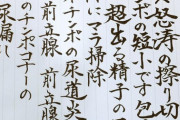 の擦り切
の短小です包
超出る精子の
にマラ掃除
チンポの尿道炎
前立腺 前立腺
のチンポコナーの
尿漏れ